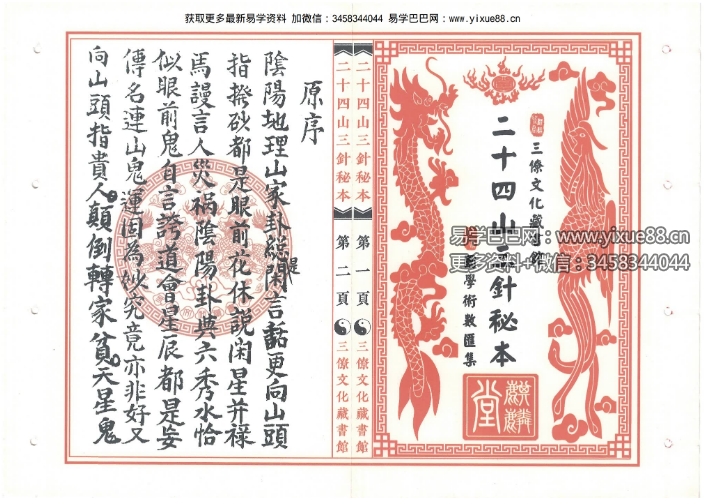 获取更多最新易学资料 加微信：3458344044 易学巴巴网：www.yixue88.cn
三僚文化藏書館
二十四山三針秘本
術數匯集
麒麟堂
二十四山三針秘本 第一頁 三僚文化藏書館
二十四山三針秘本 第二頁 三僚文化藏書館
易学巴巴网：www.yixue88.cn
更多资料+微信：3458344044
原序
陰陽地理山家卦總是閑言話更向山頭
指撥砂都是眼前花休說闲星并禄
馬謾言人災禍陰陽卦典六秀水恰
似眼前鬼自言誇道會星辰都是妄
傳名連山鬼運因為妙究竟亦非好又
向山頭指貴人顛倒轉家貧天星鬼